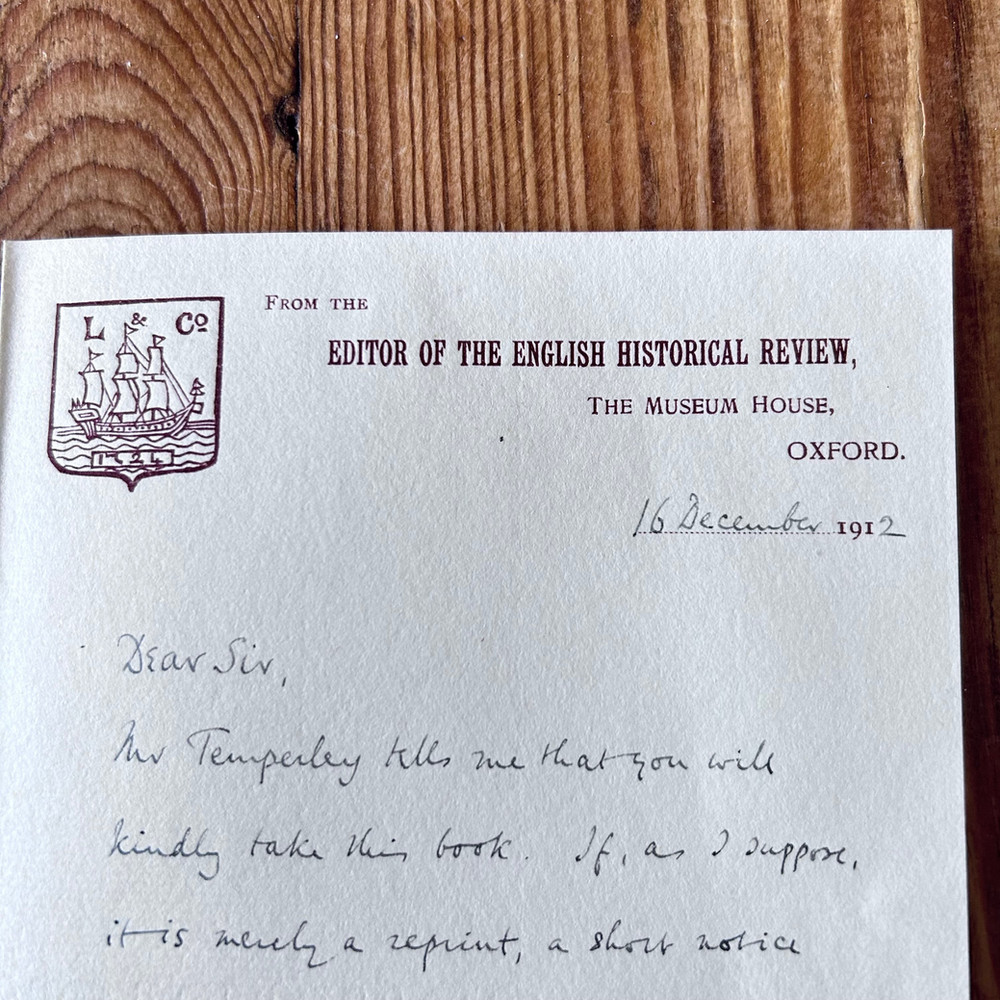 L & Co
1724
FROM THE
EDITOR OF THE ENGLISH HISTORICAL REVIEW,
THE MUSEUM HOUSE,
OXFORD.
16 December 1912
Dear Sir,
Mr Temperley tells me that you will
kindly take this book. If, as I suppose,
it is merely a reprint, a short notice